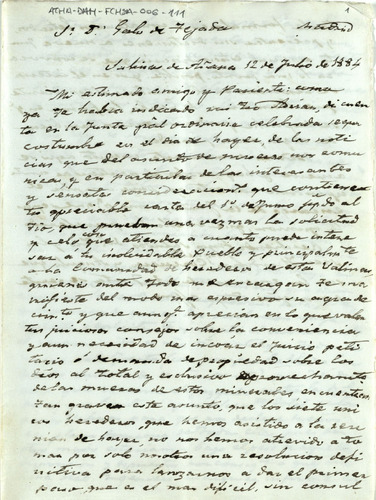 ATHA-DAH-FCHSA-006-111
1
Sr. Dn. Galo de Tejada Madrid
Salinas de Añana 12 de Julio de 1884
Mi estimado amigo y Pariente: como
ya te habia indicado mi tio, di cuen
ta en la junta gral ordinaria celebrada segun
costumbre en el dia de hoy, de la noti
cias que del asunto de nos comu
nicas, y en particular de las interesantes
y sensatas que contiene
tu apreciable carta del 1º de Junio al
tio que prueban una vez mas la solicitud
y celo con que atiendes a cuanto puede intere
sar a tu inolvidable Pueblo y principalmte
a la Comunidad de herederos de estas Salinas
quienes ante todo me encargan te ma
nifieste del modo mas espresivo su agrade
cimto y que aprecian en lo que valen
tus juiciosos consejos sobre la conveniencia
y aun necesidad de incoar el juicio peti
torio ó demanda de propiedad sobre los
al total y esclusivo aprovechamto
de las de estos minerales
Tan grave es este asunto, que los siete uni
cos herederos que hemos asistido a la reu
nion de hoy no nos hemos atrevido a to
mar por solo nosotros una resolucion defi
nitiva para lanzarnos a dar el primer
paso que es el mas dificil, sin consul